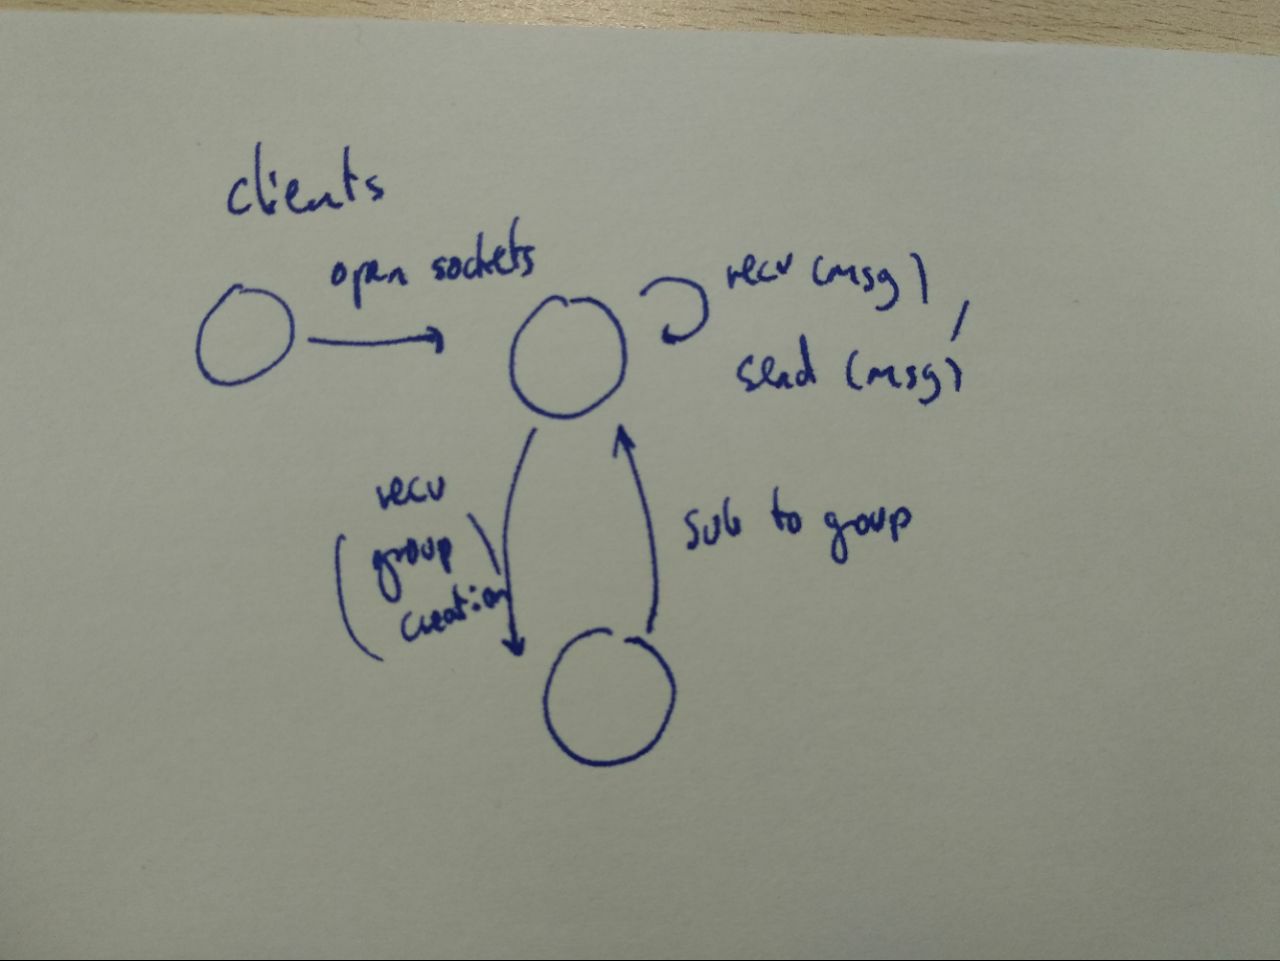 clients
open sockets
recv (msg),
send (msg)
recv
(group
creation)
sub to group